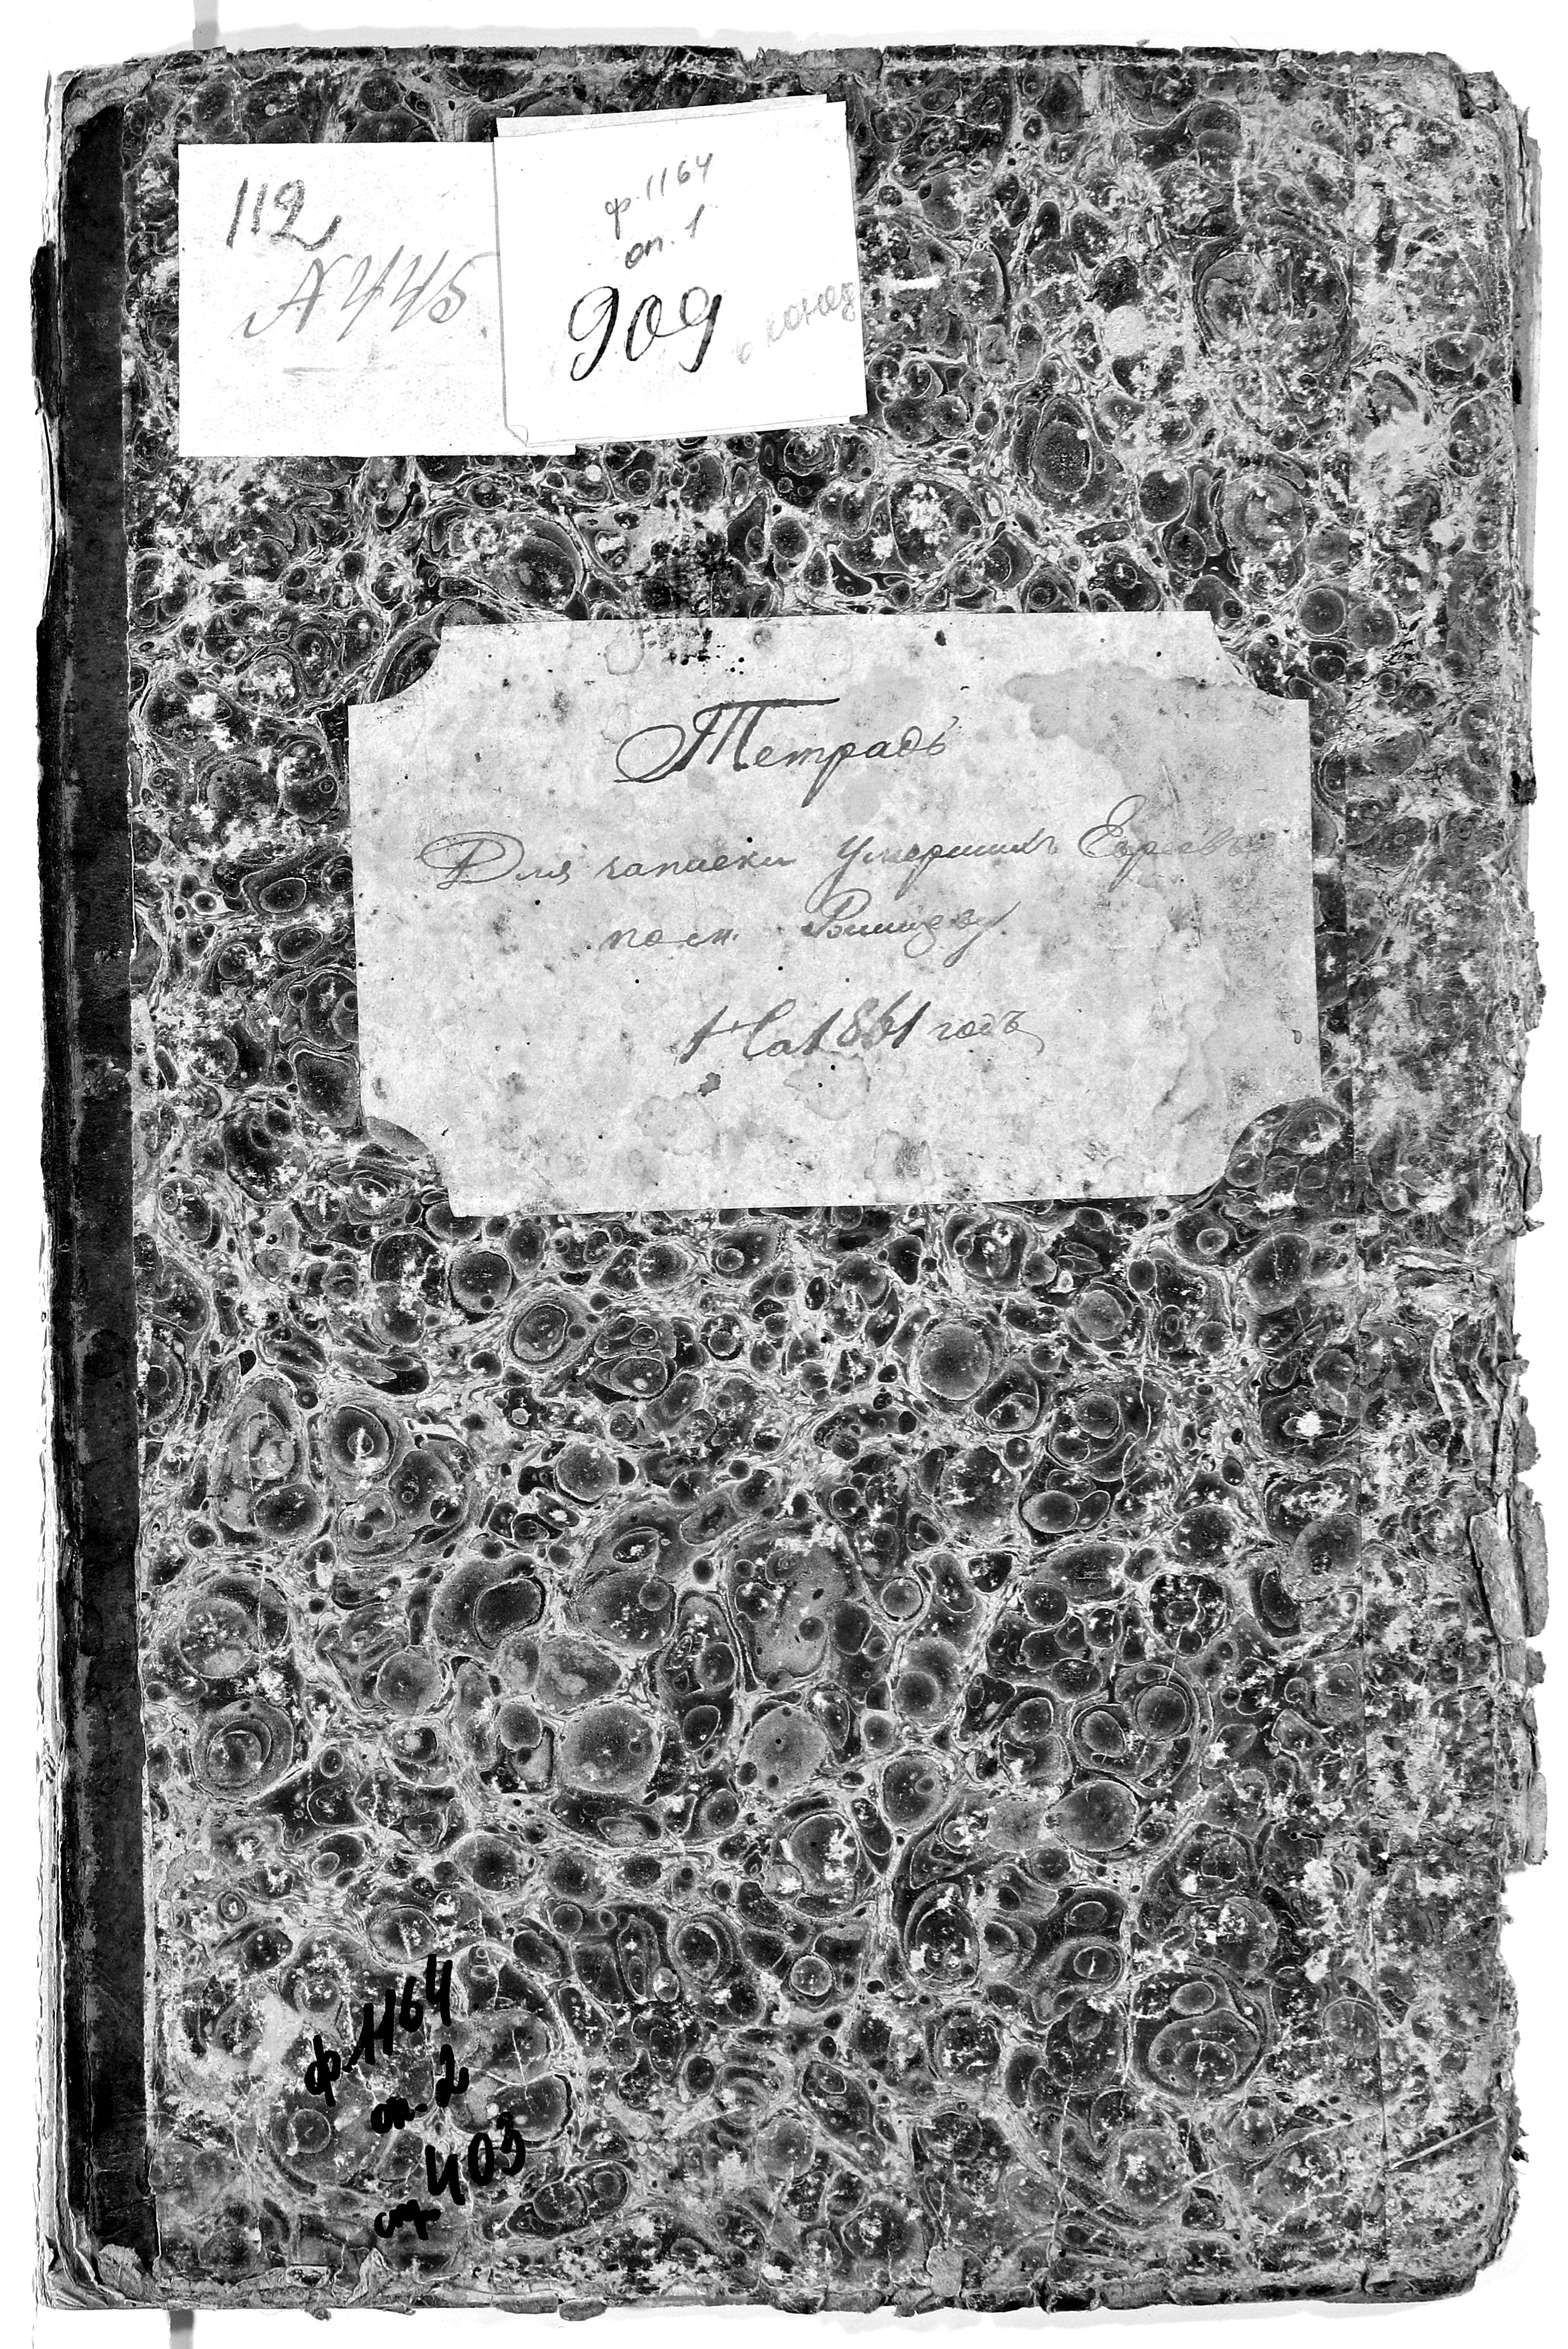 112
№ 445.
ф. 1164
оп. 1
909
Тетрадь
Для записки умершихъ Евреевъ
по м.
На 1861 годъ
ф 1164
оп. 2
403